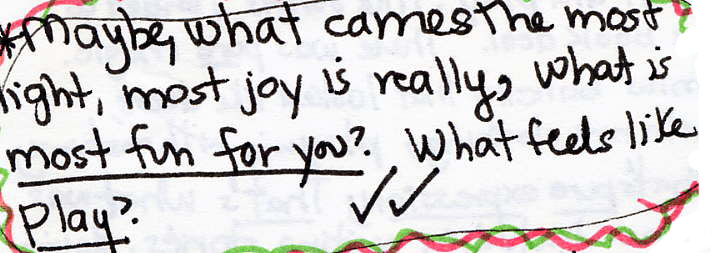 *Maybe, what carries the most
light, most joy is really, what is
most fun for you? What feels like
Play?